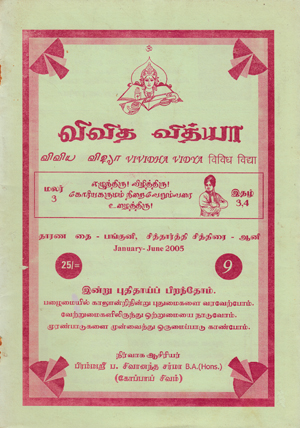 ௐ
விவித வித்யா
விவிய விஜ்யா VIVIDHA VIDYA विविध विद्या
மலர்
3
எழுந்திரு! விழித்திரு!
கோரியகருமம் நிறைவேறும்வரை
உழைத்திரு!
இதழ்
3,4
தாரண தை - பங்குனி, சித்தார்த்தி சித்திரை - ஆனி
January- June 2005
25/=
9
இன்று புதிதாய்ப் பிறந்தோம்.
பழைமையில் காலூன்றிநின்று புதுமைகளை வரவேற்போம்.
வேற்றுமைகளிலிருந்து ஒற்றுமையை நாடுவோம்.
முரண்பாடுகளை முன்வைத்து ஒருமைப்பாடு காண்போம்.
நிர்வாக ஆசிரியர்
பிரம்மஸ்ரீ ப. சிவானந்த சர்மா B.A.(Hons.)
(கோப்பாய் சிவம்)